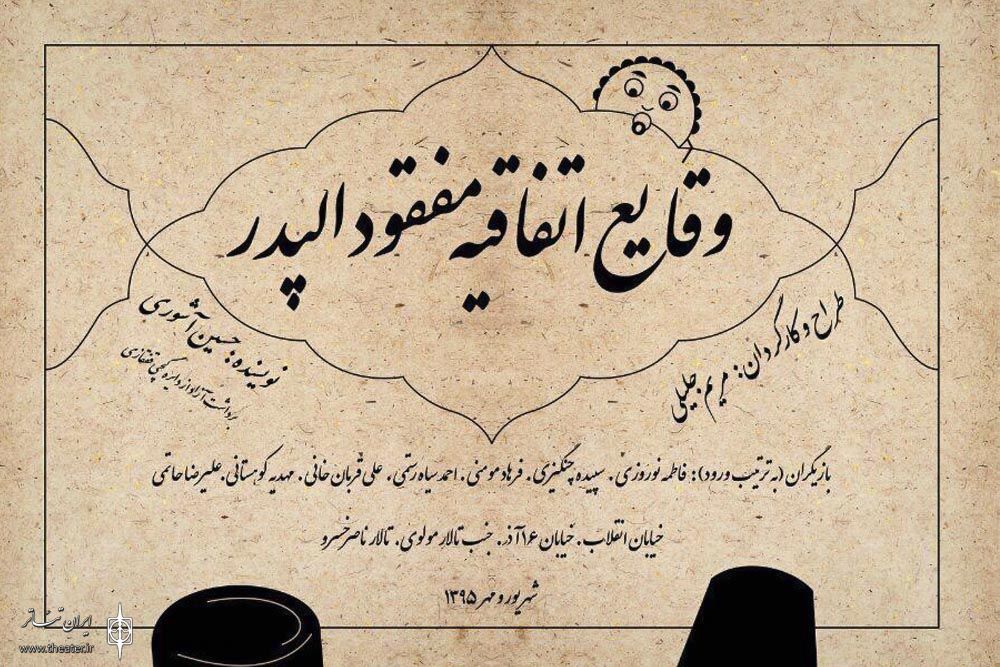 وقایع اتفاقیه مفقود الپدر
طراح و کارگردان: مریم جلیلی
نویسنده: حسین آشوری
برداشت آزاد از دایره گچی قفقازی
بازیگران (به ترتیب ورود): فاطمه نوروزی. سپیده چنگیزی. فرهاد مومنی. احمد سیاه رستمی. علی قربان خانی. مهدیه کوهستانی. علیرضا حاتمی
خیابان انقلاب. خیابان ۱۶ آذر. جنب تالار مولوی. تالار ناصر خسرو
شهریور و مهر ۱۳۹۵
ایران تئاتر
www.theater.ir